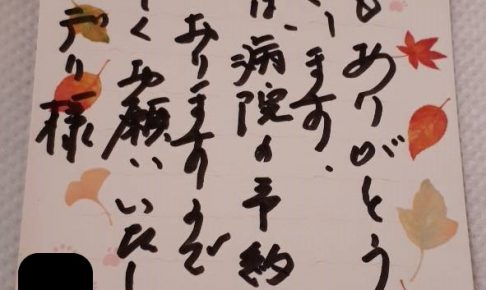 もありがとう
います。
は、病院の予約
ありますので
くお願いいたし
デリ様